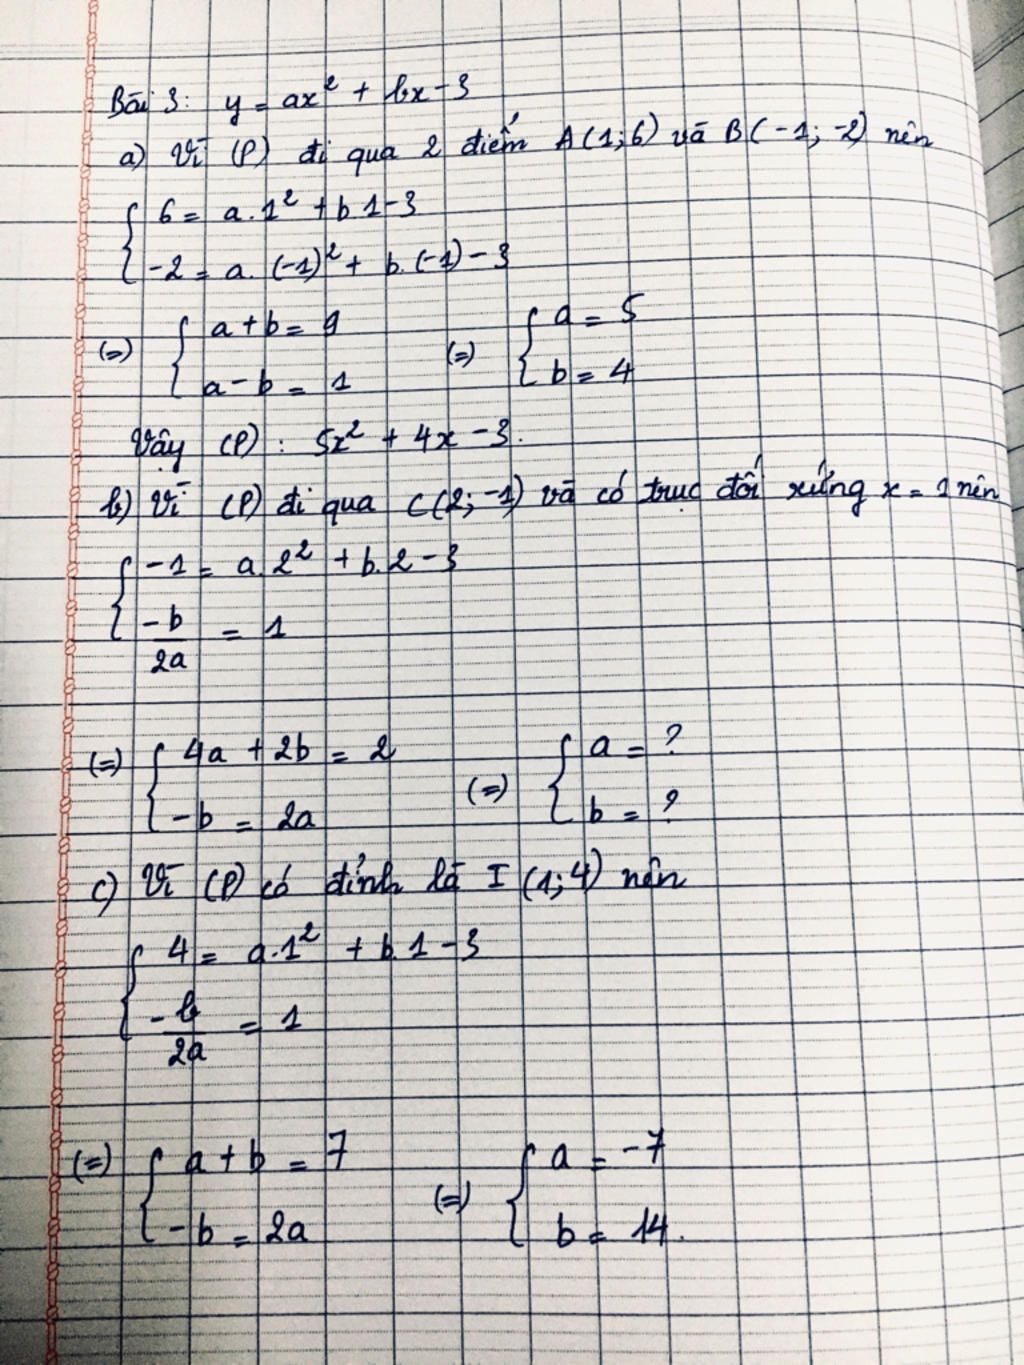 Bài 3: y = ax² + bx - 3
a) Vì (P) đi qua 2 điểm A(1;6) và B(-1; -2) nên
6 = a.1² + b.1 - 3
-2 = a.(-1)² + b.(-1) - 3
(=) a + b = 9 (=) a = 5
a - b = 1 b = 4
Vậy (P): 5x² + 4x - 3.
b) Vì (P) đi qua C(2; -1) và có trục đối xứng x = 1 nên
-1 = a.2² + b.2 - 3
-b/2a = 1
(=) 4a + 2b = 2 (=) a = ?
-b = 2a b = ?
c) Vì (P) có đỉnh là I (1;4) nên
4 = a.1² + b.1 - 3
-b/2a = 1
(=) a + b = 7 (=) a = -7
-b = 2a b = 14.